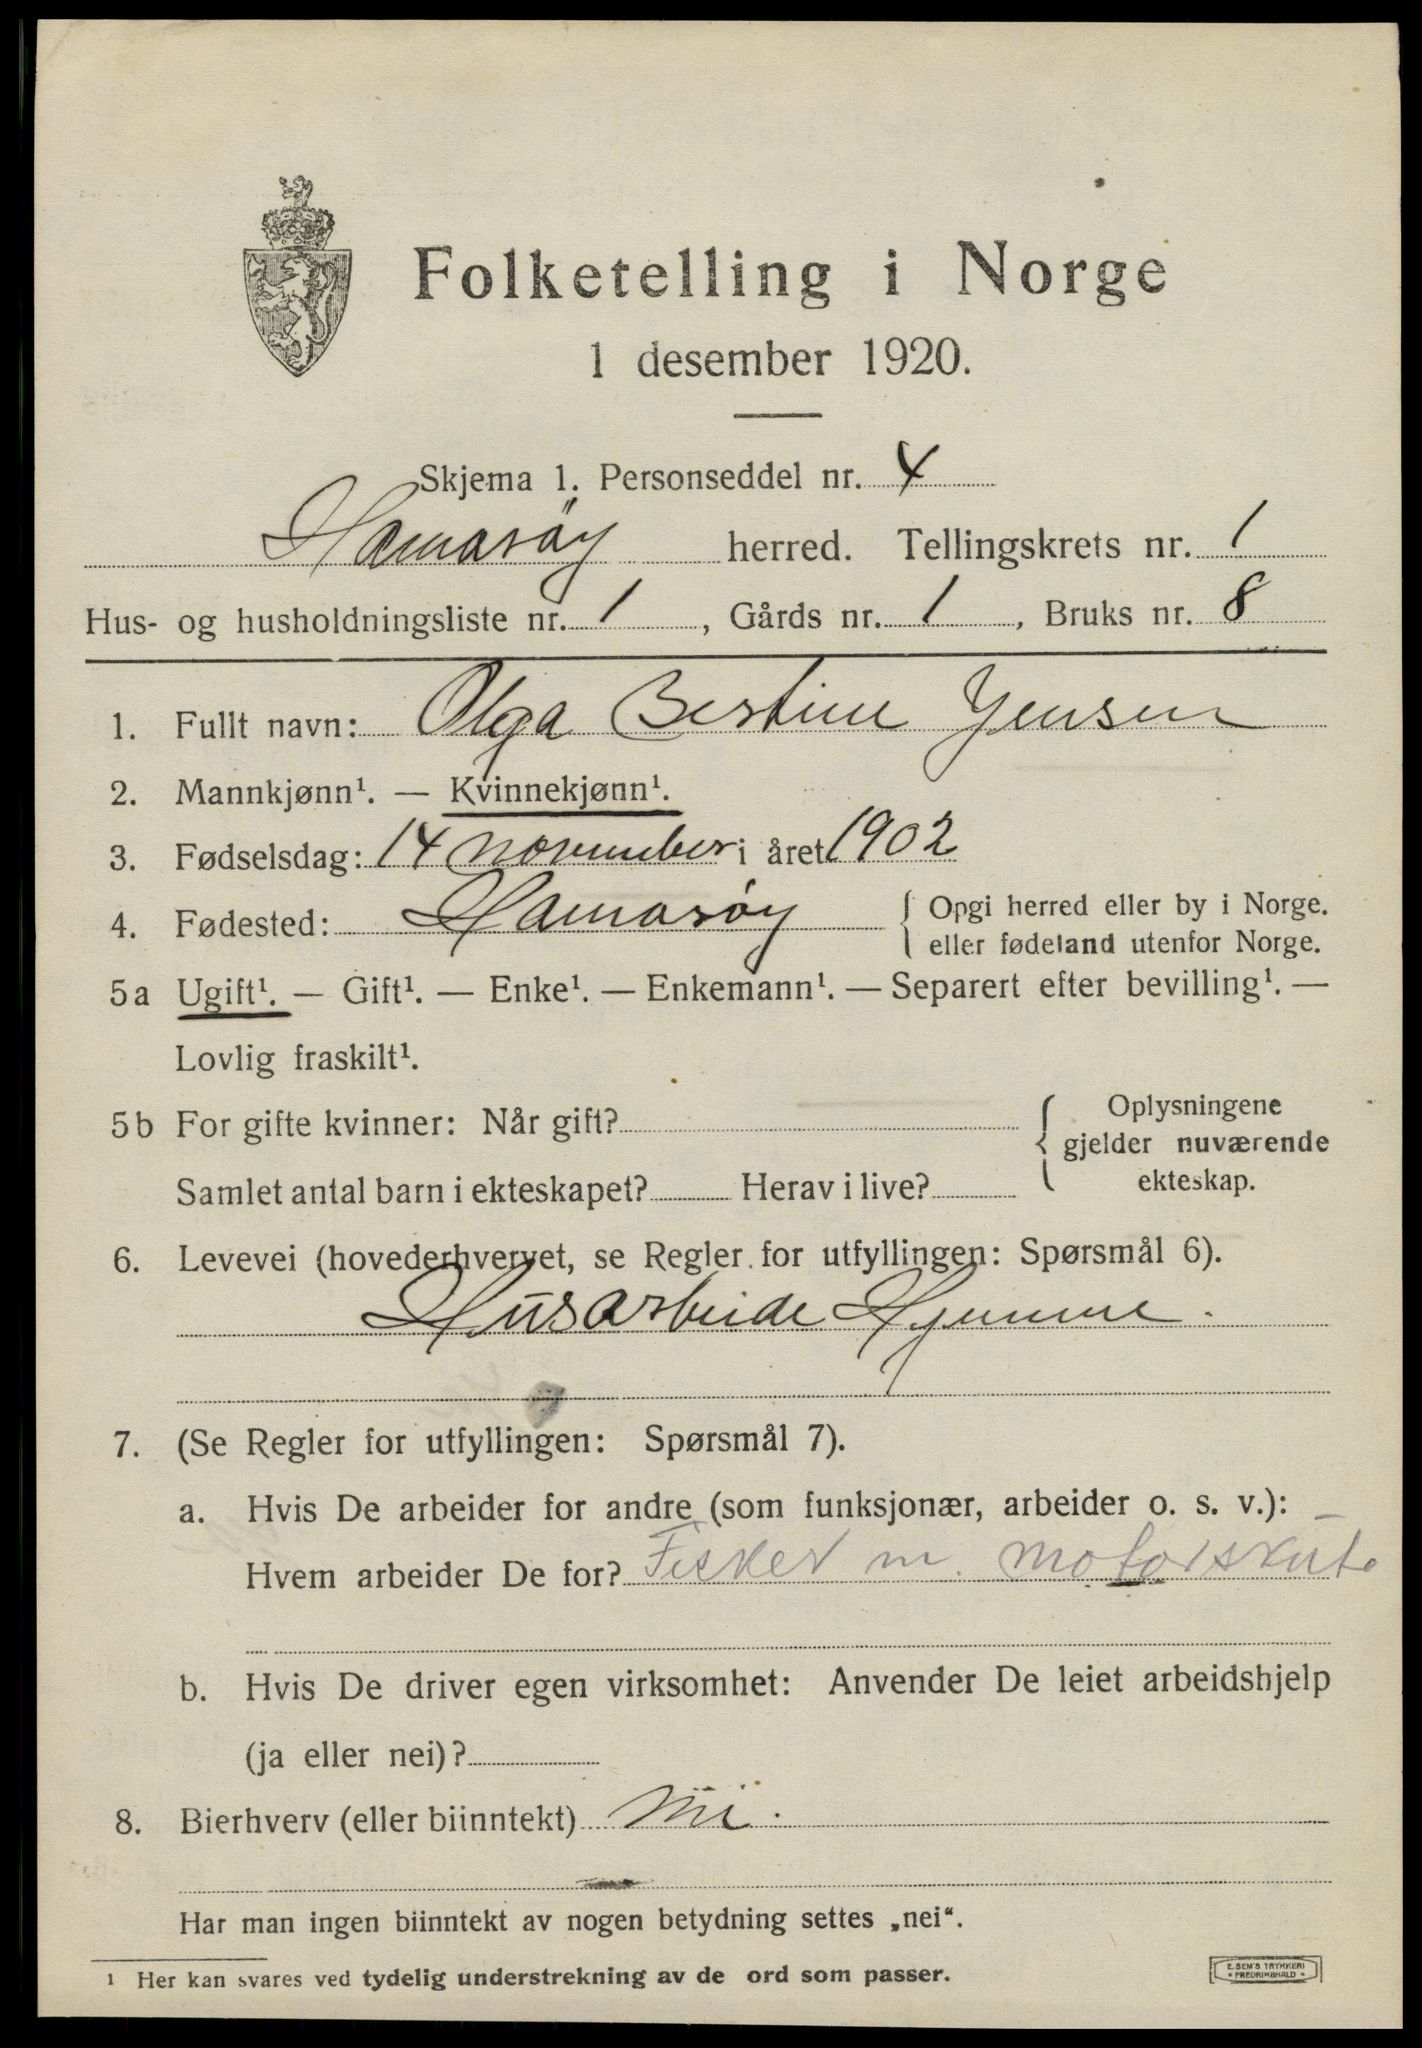 Folketelling i Norge
1 desember 1920.
Skjema 1. Personseddel nr. 4
Hamarøy herred. Tellingskrets nr. 1
Hus- og husholdningsliste nr. 1, Gårds nr. 1, Bruks nr. 8
1. Fullt navn: Olga Bertine Jensen
2. Mannkjønn¹. — Kvinnekjønn¹.
3. Fødselsdag: 14 november i året 1902
4. Fødested: Hamarøy { Opgi herred eller by i Norge.
eller fødeland utenfor Norge.
5a Ugift¹. — Gift¹. — Enke¹. — Enkemann¹. — Separert efter bevilling¹. —
Lovlig fraskilt¹.
5b For gifte kvinner: Når gift? { Oplysningene
gjelder nuværende
Samlet antal barn i ekteskapet? Herav i live? ekteskap.
6. Levevei (hovederhvervet, se Regler for utfyllingen: Spørsmål 6).
Husarbeide Hjemme.
7. (Se Regler for utfyllingen: Spørsmål 7).
a. Hvis De arbeider for andre (som funksjonær, arbeider o. s. v.):
Hvem arbeider De for? Fisker m. motorskute
b. Hvis De driver egen virksomhet: Anvender De leiet arbeidshjelp
(ja eller nei)?
8. Bierhverv (eller biinntekt) nei.
Har man ingen biinntekt av nogen betydning settes „nei“.
1 Her kan svares ved tydelig understrekning av de ord som passer.
E. SEM'S TRYKKERI
• FREDRIKSHALD •